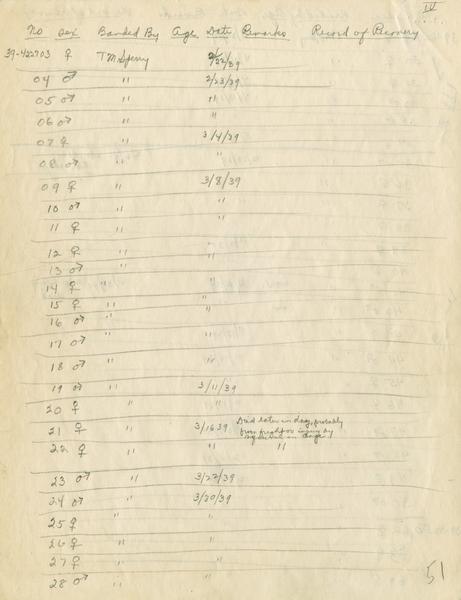 IV
No Sex Banded By Age Date Remarks Record of Recovery
39-422703 ♀ T M Sperry 2/22/39
04 ♂ " 2/23/39
05 ♂ " "
06 ♂ " "
07 ♀ " 3/4/39
08 ♂ " "
09 ♀ " 3/8/39
10 ♂ " "
11 ♀ " "
12 ♀ " "
13 ♂ "
14 ♀ " "
15 ♀ " "
16 ♂ " "
17 ♂ " "
18 ♂ " "
19 ♂ " 3/11/39
20 ♀ " "
21 ♀ " 3/16 39 Died later in day, probably
from injury by
in cage
22 ♀ " " "
23 ♂ " 3/22/39
24 ♂ " 3/30/39
25 ♀ " "
26 ♀ " "
27 ♀ " "
28 ♂ " "
51